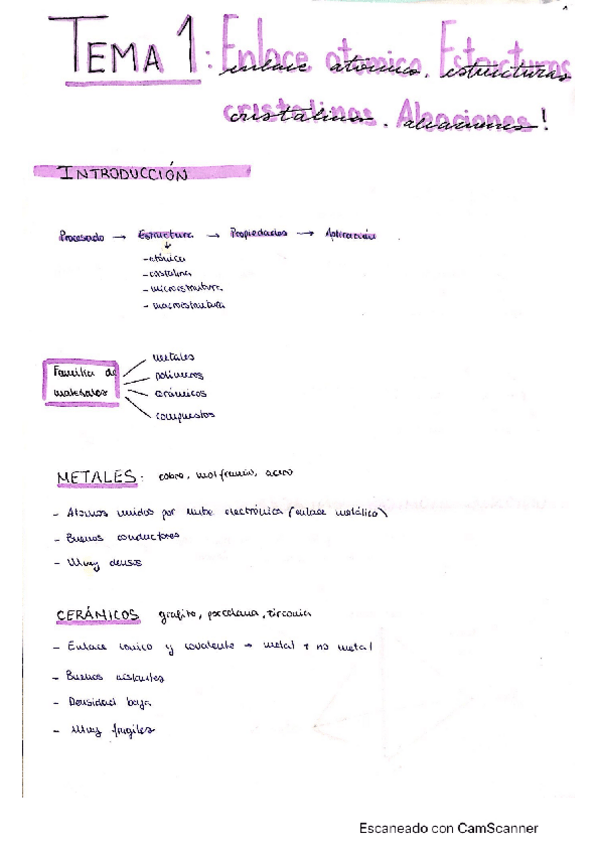 TEMA 1: Enlace atomico. Estructuras
cristalinas. Aleaciones!
INTRODUCCIÓN
Procesado → Estructura → Propiedades → Aplicación
- atómica
- cristalina
- microestrutura
- macroestrutura
Familia de
materiales
metales
polímeros
cerámicos
compuestos
METALES: cobre, wolframio, acero
- Atomos unidos por nube electrónica (enlace metálico)
- Buenos conductores
- Muy densos
CERÁMICOS grafito, porcelana, zirconia
- Enlace ionico y covalente → metal + no metal
- Buenos aislantes
- Densidad baja
- Muy fragiles
Escaneado con CamScanner